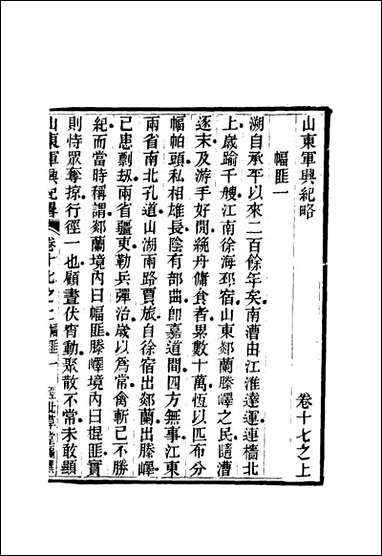 山東軍興紀略 卷十七之上
幅匪一
溯自承平以來二百餘年矣南漕由江淮達運連檣北
上歲踰千艘江南徐海邳宿山東郯蘭滕嶧之民隨漕
逐末及游手好閒統丹傭食者累數十萬恆以匹布分
幅帕頭私相雄長陰有部曲卽嘉道間四方無事江東
兩省南北孔道山湖兩路賈旅自徐宿出郯蘭出滕嶧
已患剽刼兩省疆吏勒兵彈治歲以爲常禽斬已不勝
紀而當時稱謂郯蘭境內曰幅匪滕嶧境內曰掍匪實
則恃眾奪掠行徑一也顧晝伏宵動聚散不常未敢顯
山東軍興紀畧 卷十七之上 幅匪一